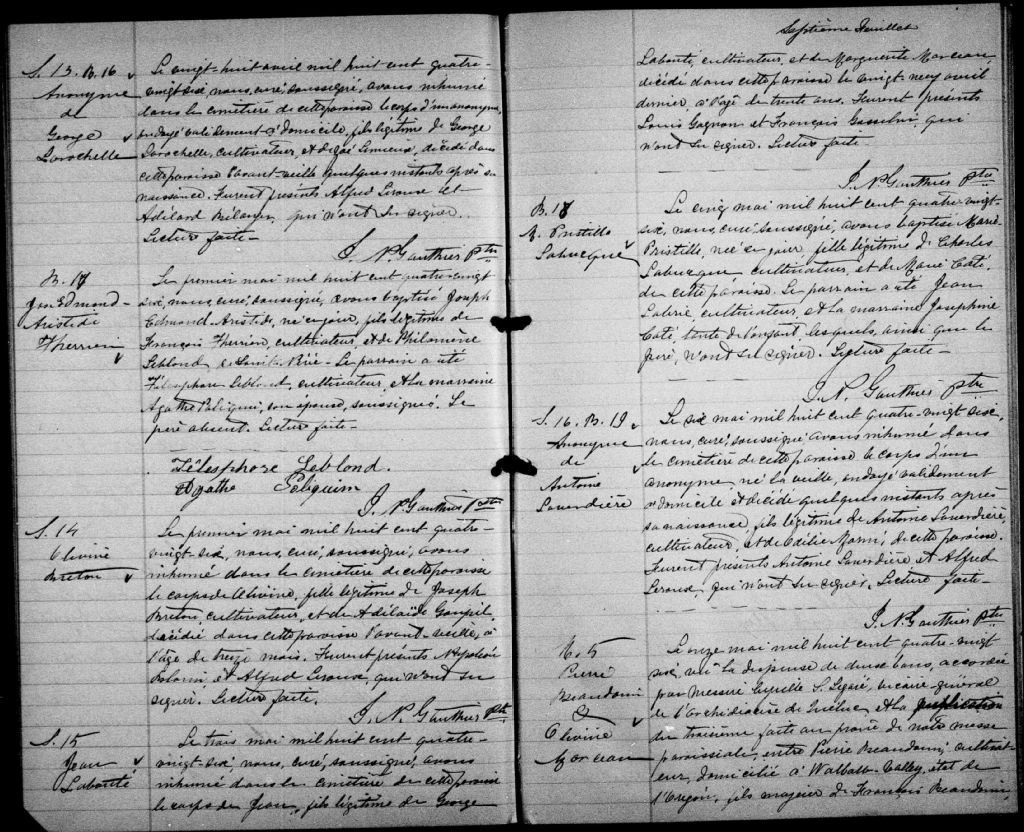 S. 13. B. 16
Anonyme
de
George
Larochelle
Le vingt-huit avril mil huit cent quatre-
vingt six, nous, curé, soussigné, avons inhumé
dans le cimetière de cette paroisse le corps d'un anonyme,
ondoyé validement à domicile, fils légitime de George
Larochelle, cultivateur, et de Lemieux, décédé dans
cette paroisse l'avant-veille quelques instants après sa
naissance. Furent présents Alfred Giroux et
Adélard Bélanger, qui n'ont su signer.
Lecture faite-
J. N. Gauthier Ptre
B. 17
Jos Edmond-
Aristide
Therrien
Le premier mai mil huit cent quatre-vingt
six, nous, curé, soussigné, avons baptisé Joseph
Edmond Aristide, né ce jour, fils légitime de
François Therrien, cultivateur, et de Philomène
Leblond, de Sainte. Le parrain a été
Télesphore Leblond, cultivateur, et la marraine
Agathe Poliquin, son épouse, soussignés. Le
père absent. Lecture faite-
Télesphore Leblond.
Agathe Poliquin
J. N. Gauthier Ptre
S. 14
Olivine
Breton
Le premier mai mil huit cent quatre-
vingt-six, nous, curé, soussigné, avons
inhumé dans le cimetière de cette paroisse
le corps de Olivine, fille légitime de Joseph
Breton, cultivateur, et de Adélaïde Goupil,
décédée dans cette paroisse l'avant-veille, à
l'âge de treize mois. Furent présents Napoléon
et Alfred Giroux, qui n'ont su
signer. Lecture faite.
J. N. Gauthier Ptre
S. 15
Jean
Labonté
Le trois mai mil huit cent quatre-
vingt-six, nous, curé, soussigné, avons
inhumé dans le cimetière de cette paroisse
le corps de Jean, fils légitime de George
Septième Feuillet
Labonté, cultivateur, et de Marguerite Morceau,
décédé dans cette paroisse le vingt neuf avril
dernier, à l'âge de trente ans. Furent présents
Louis Gagnon et François Gosselin, qui
n'ont su signer. Lecture faite-
J. N. Gauthier Ptre
B. 18
M. Pristille
Labrecque
Le cinq mai mil huit cent quatre-vingt-
six, nous, curé, soussigné, avons baptisé Marie
Pristille, née ce jour, fille légitime de Charles
Labrecque cultivateur, et de Marie Coté,
de cette paroisse. Le parrain a été Jean
cultivateur, et la marraine Josephine
Coté, tante de l'enfant lesquels, ainsi que le
père, n'ont su signer. Lecture faite-
J. N. Gauthier Ptre
S. 16. B. 19
Anonyme
de
Antoine
Laverdière
Le six mai mil huit cent quatre-vingt six,
nous, curé, soussigné avons inhumé dans
le cimetière de cette paroisse le corps d'un
anonyme né la veille, ondoyé validement
à domicile et décédé quelques instants après
sa naissance, fils légitime de Antoine Laverdière,
cultivateur, et de Odélie, de cette paroisse.
Furent présents Antoine Laverdière, et Alfred
Giroux, qui n'ont su signer. Lecture faite-
J. N. Gauthier Ptre
M. 5
Pierre
Beaudoin
&
Olivine
Morceau
Le onze mai mil huit cent quatre-vingt
six, vu la dispense de deux bans, accordée
par Messire Cyrille E. Légaré, vicaire-général
de l'Archidiocèse de Québec, et la publication
du troisième faite au prône de notre messe
paroissiale, entre Pierre Beaudoin, cultivat-
eur, domicilié à état de
l'Orégon, fils majeur de François Beaudoin,